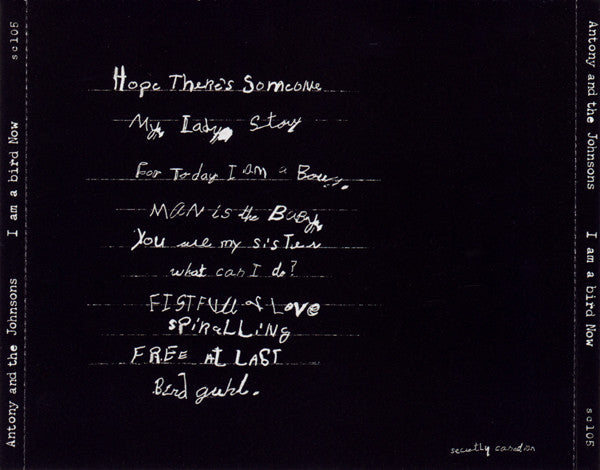 Antony and the Johnsons I am a bird Now sc105
Hope There's Someone
My Lady Story
For Today I Am a Boy.
MAN is the BABY
You are my sister
what can I do?
FISTFULL of LOVE
SPIRALLING
FREE AT LAST
Bird guhl.
secretly canadian
Antony and the Johnsons I am a bird Now sc105